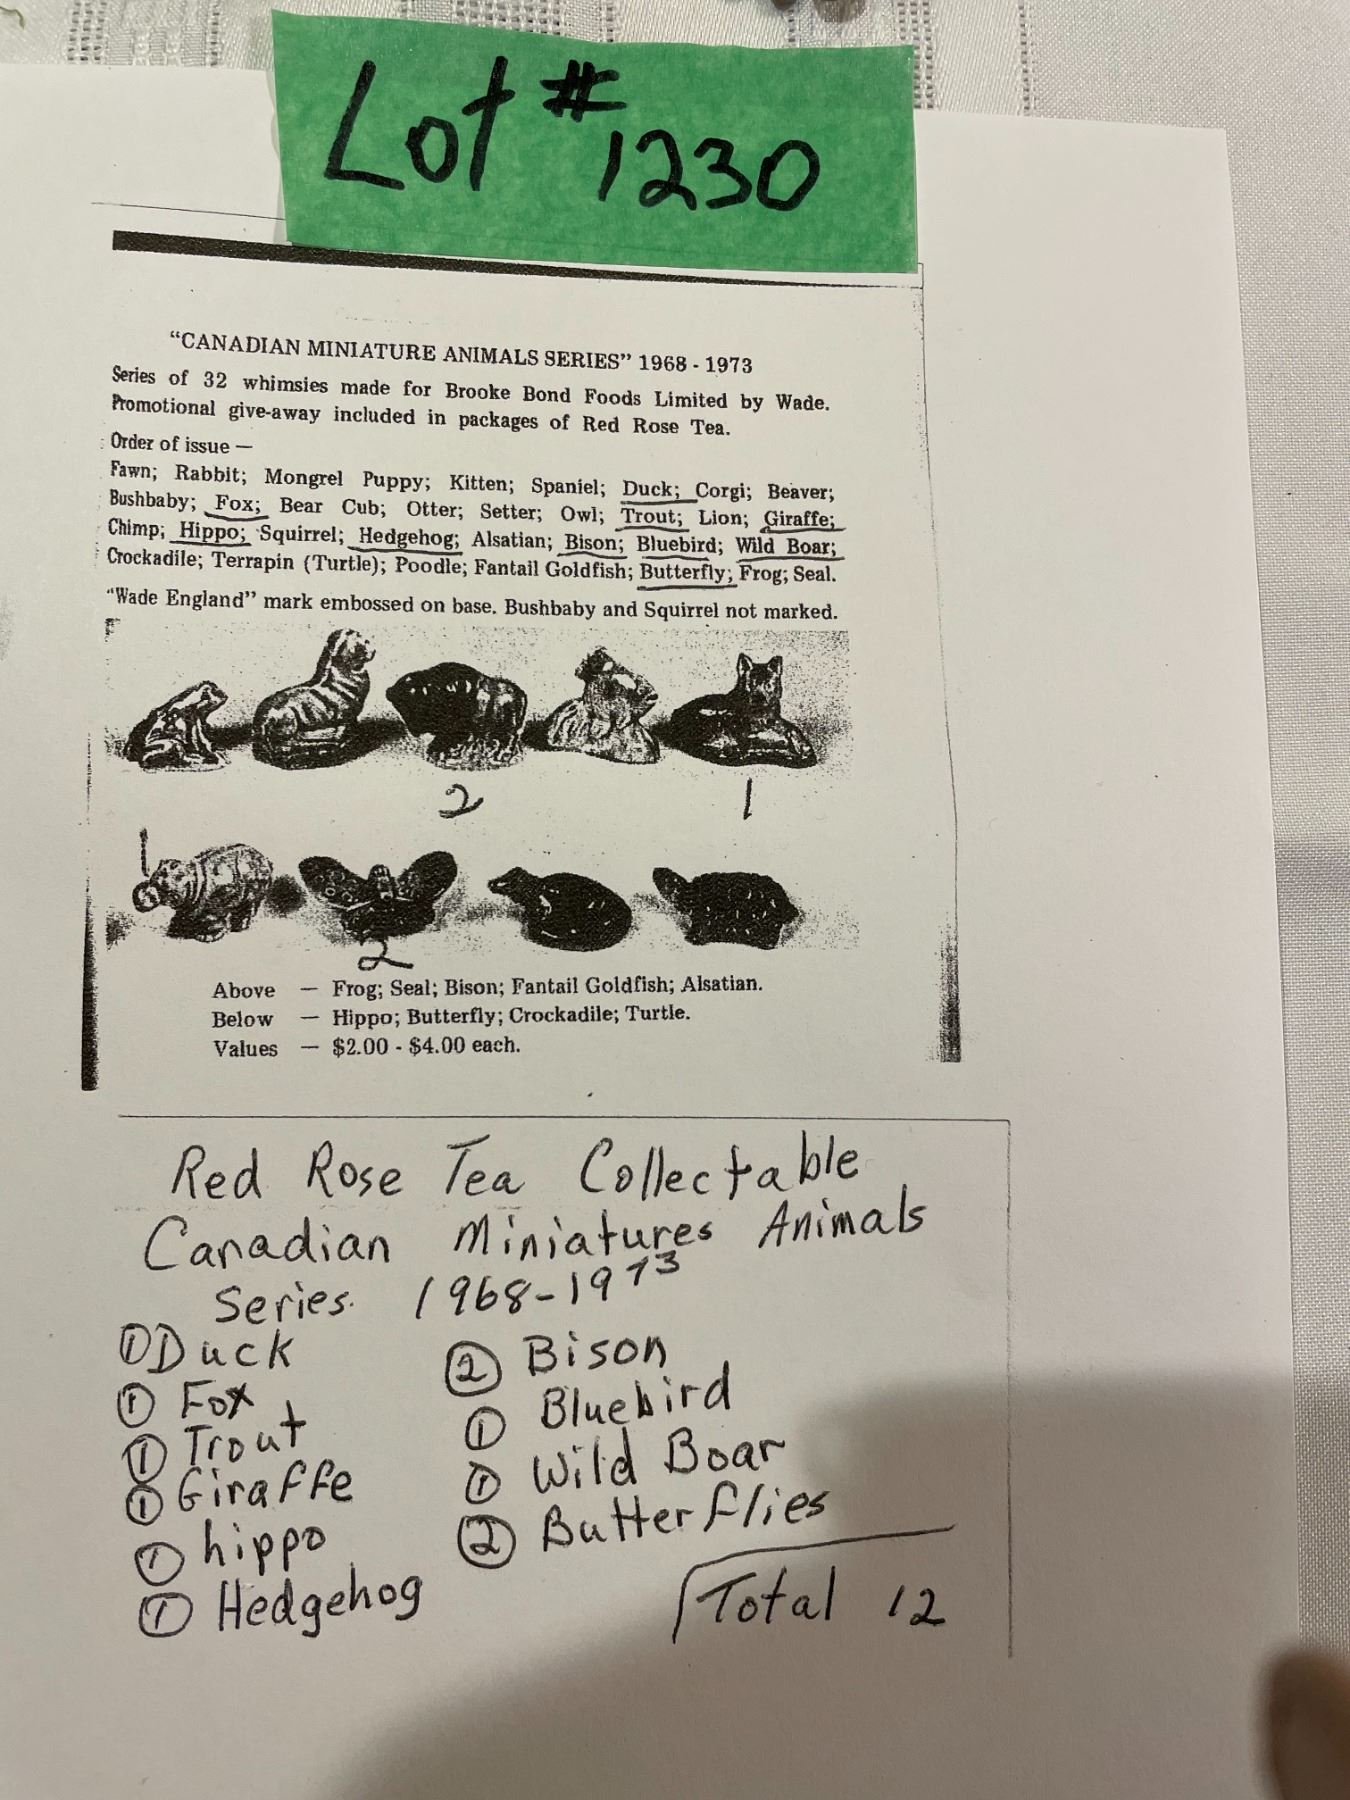 Lot # 1230
"CANADIAN MINIATURE ANIMALS SERIES" 1968 - 1973
Series of 32 whimsies made for Brooke Bond Foods Limited by Wade.
Promotional give-away included in packages of Red Rose Tea.
Order of issue —
Fawn; Rabbit; Mongrel Puppy; Kitten; Spaniel; Duck; Corgi; Beaver;
Bushbaby; Fox; Bear Cub; Otter; Setter; Owl; Trout; Lion; Giraffe;
Chimp; Hippo; Squirrel; Hedgehog; Alsatian; Bison; Bluebird; Wild Boar;
Crockadile; Terrapin (Turtle); Poodle; Fantail Goldfish; Butterfly; Frog; Seal.
"Wade England" mark embossed on base. Bushbaby and Squirrel not marked.
2 1
1
2
Above — Frog; Seal; Bison; Fantail Goldfish; Alsatian.
Below — Hippo; Butterfly; Crockadile; Turtle.
Values — $2.00 - $4.00 each.
Red Rose Tea Collectable
Canadian Miniatures Animals
Series. 1968-1973
1 Duck
1 Fox
1 Trout
1 Giraffe
1 hippo
1 Hedgehog
2 Bison
1 Bluebird
1 Wild Boar
2 Butterflies
Total 12